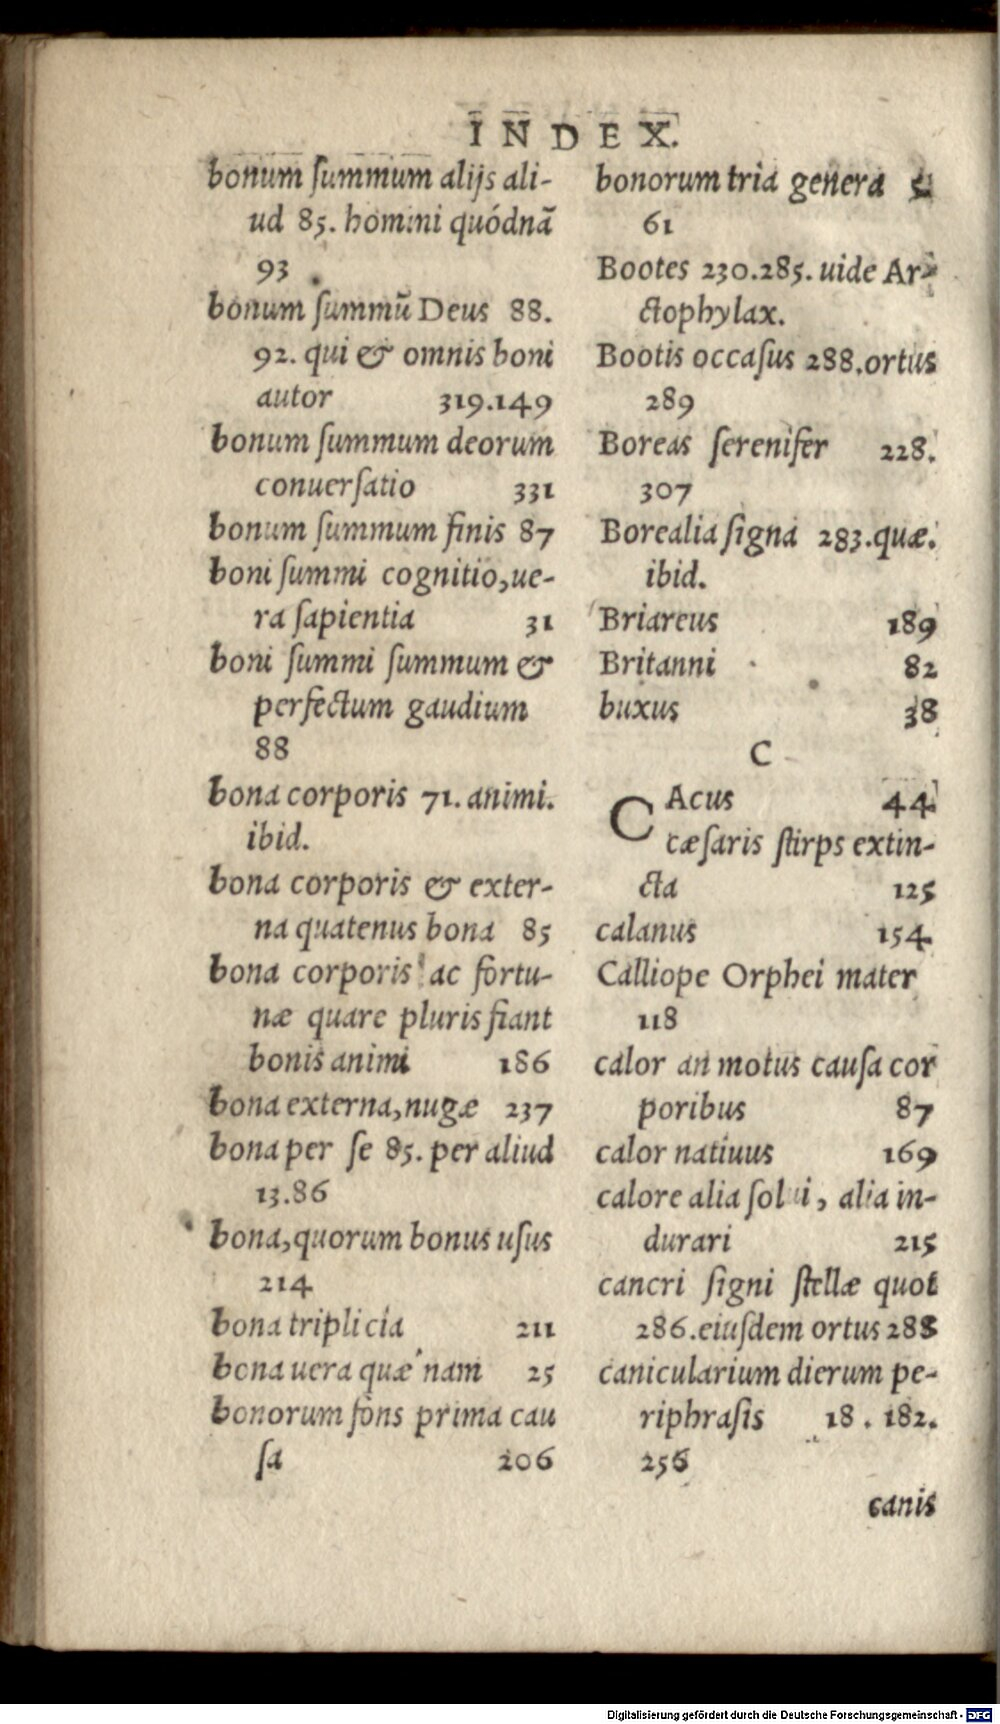 INDEX.
bonum ſummum alijs ali-
ud 85. homini quódnã
93
bonum ſummũ Deus 88.
92. qui & omnis boni
autor 319.149
bonum ſummum deorum
conuerſatio 331
bonum ſummum finis 87
boni ſummi cognitio, ue-
ra ſapientia 31
boni ſummi ſummum &
perfectum gaudium
88
bona corporis 71. animi.
ibid.
bona corporis & exter-
na quatenus bona 85
bona corporis ac fortu-
næ quare pluris fiant
bonis animi 186
bona externa, nugæ 237
bona per ſe 85. per aliud
13.86
bona, quorum bonus uſus
214
bona triplicia 211
bona uera quæ nam 25
bonorum fons prima cau
ſa 206
bonorum tria genera
61
Bootes 230.285. uide Ar-
ctophylax.
Bootis occaſus 288. ortus
289
Boreas ſerenifer 228.
307
Borealia ſigna 283. quæ.
ibid.
Briareus 189
Britanni 82
buxus 38
C
CAcus 44
cæſaris ſtirps extin-
cta 125
calanus 154
Calliope Orphei mater
118
calor an motus cauſa cor
poribus 87
calor natiuus 169
calore alia ſolui, alia in-
durari 215
cancri ſigni ſtellæ quot
286. eiuſdem ortus 288
canicularium dierum pe-
riphraſis 18. 182.
256
canis
Digitalisierung gefördert durch die Deutsche Forschungsgemeinschaft - DFG